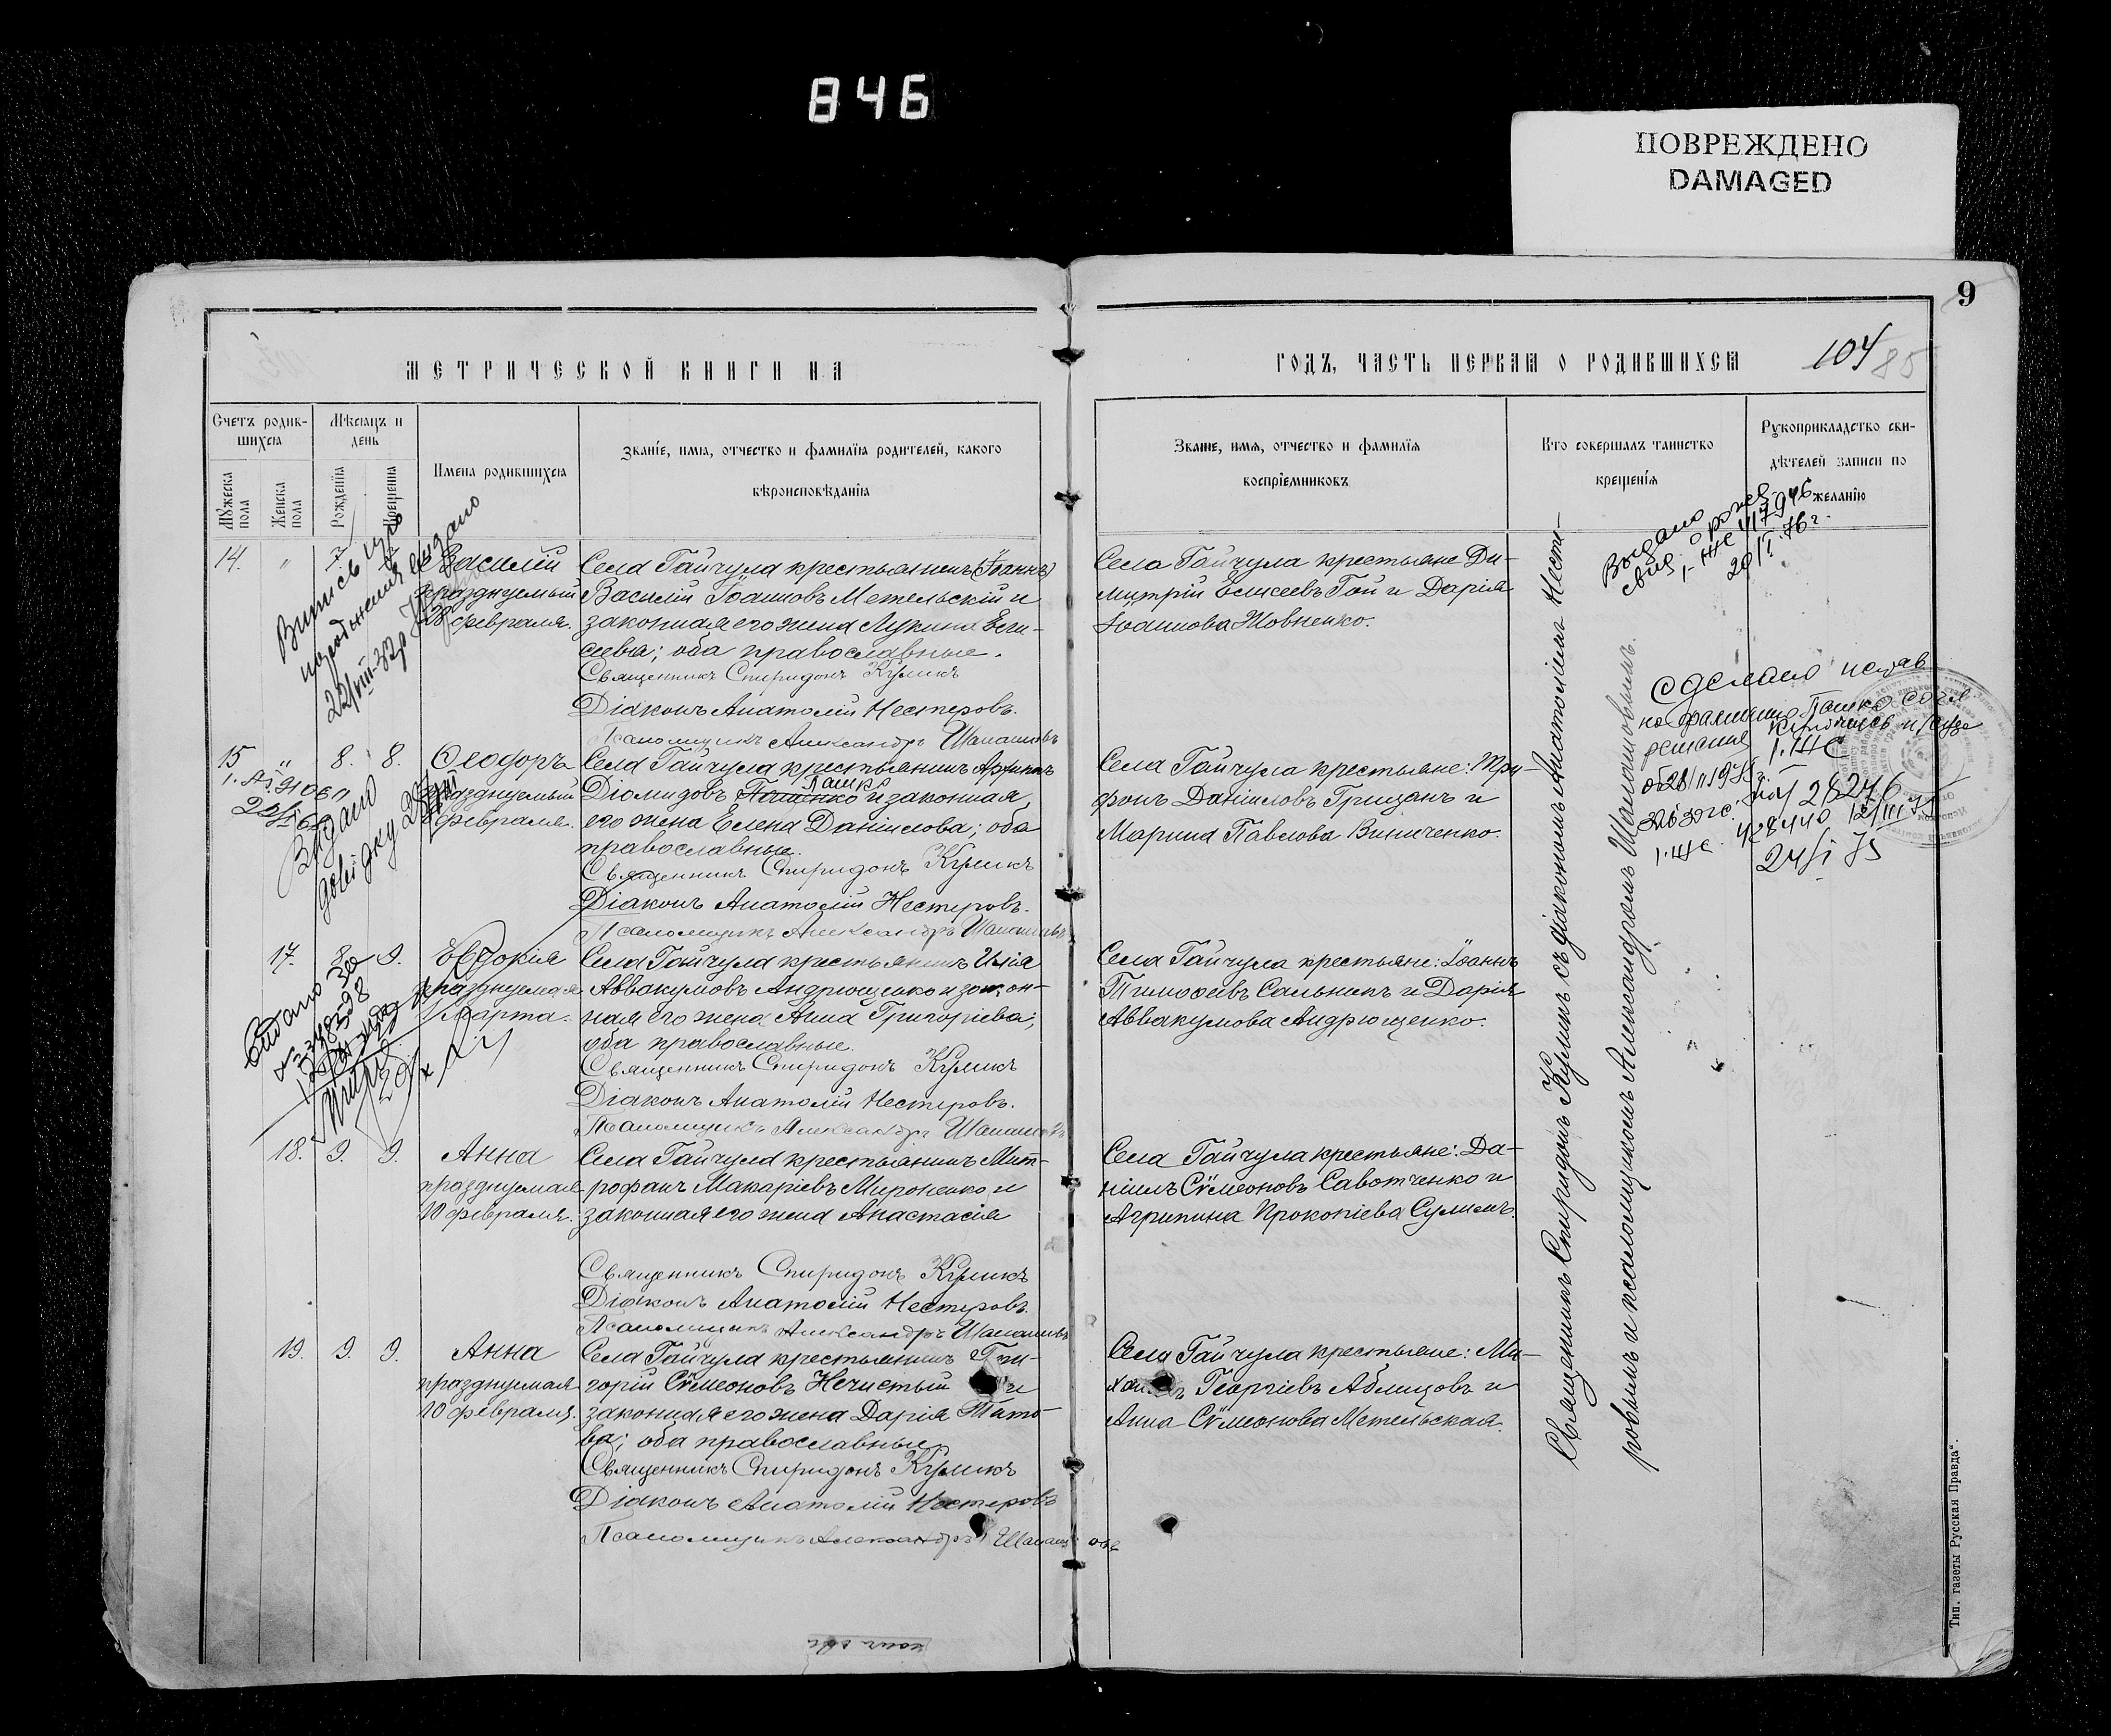 846
ПОВРЕЖДЕНО
DAMAGED
9
МЕТРИЧЕССКОЙ КНИГИ НА
ГОДЪ, ЧАСТЬ ПЕРВАЯ О РОДИВШИХСЯ
104
85
Счетъ родив-
шихся
Мѣсяцъ и
день
Мужеска
пола
Женска
пола
Рожденія
Крещенія
Имена родившихся
Званіе, имя, отчество и фамилія родителей, какого
вѣроисповѣданія
Званіе, имя, отчество и фамилія
воспріемниковъ
Кто совершалъ таинство
крещенія
Рукоприкладство сви-
дѣтелей записи по
желанію
14. " 7.
Василій
празднуемый
28 февраля.
Села Гайчула крестьянинъ (Іоаннъ)
Василій Іоанновъ Метельскій и
законная его жена Лукина Ели-
сева; оба православные.
Священникъ Спиридонъ Куликъ
Діаконъ Анатолій Нестеровъ.
Псаломщикъ Александръ Шапашовъ
Села Гайчула крестьяне Ди-
митрій Елисеевъ Гой и Дарія
Іоаннова Жовненко.
Выдано
свид. о рожд.
I-ЖС 417946
20/I.76г.
Випись про
народження видано
22/VIII-32р
15 " 8. 8.
Ѳеодоръ
празднуемый
8 февраля.
Села Гайчула крестьянинъ
Пашко
Діомидовъ Пащенко и законная
его жена Елена Даніилова; оба
православные.
Священникъ Спиридонъ Куликъ
Діаконъ Анатолій Нестеровъ.
Псаломщикъ Александръ Шапашовъ
Села Гайчула крестьяне: Три-
фонъ Даніиловъ Грицанъ и
Марина Павлова Винниченко.
Видано
довідку
Сделано исправ
на фамилию Пашко
решения
24/I 75
17. 8. 9.
Евдокія
празднуемая
1 Марта.
Села Гайчула крестьянинъ Илія
Аввакумовъ Андрющенко и закон-
ная его жена Анна Григоріева;
оба православные.
Священникъ Спиридонъ Куликъ
Діаконъ Анатолій Нестеровъ.
Псаломщикъ Александръ Шапашовъ
Села Гайчула крестьяне: Іоаннъ
Тимоѳеевъ Сальникъ и Дарія
Аввакумова Андрющенко.
18. 9. 9.
Анна
празднуемая
10 февраля.
Села Гайчула крестьянинъ Мит-
рофанъ Макаріевъ Мироненко и
законная его жена Анастасія
Священникъ Спиридонъ Куликъ
Діаконъ Анатолій Нестеровъ.
Псаломщикъ Александръ Шапашовъ
Села Гайчула крестьяне: Да-
ніилъ Сѵмеоновъ Савотченко и
Агрипина Прокопіева Сулимъ.
19. 9. 9.
Анна
празднуемая
10 февраля.
Села Гайчула крестьянинъ Гри-
горій Сѵмеоновъ Нечистый и
законная его жена Дарія Тито-
ва; оба православные.
Священникъ Спиридонъ Куликъ
Діаконъ Анатолій Нестеровъ
Псаломщикъ Александръ
Села Гайчула крестьяне: Ми-
хаилъ Георгіевъ Аблицовъ и
Анна Сѵмеонова Метельская.
Священникъ Спиридонъ Куликъ съ діакономъ Анатоліемъ Несте-
ровымъ и псаломщикомъ Александромъ Шапашовымъ.
Тип. газеты Русская Правда".